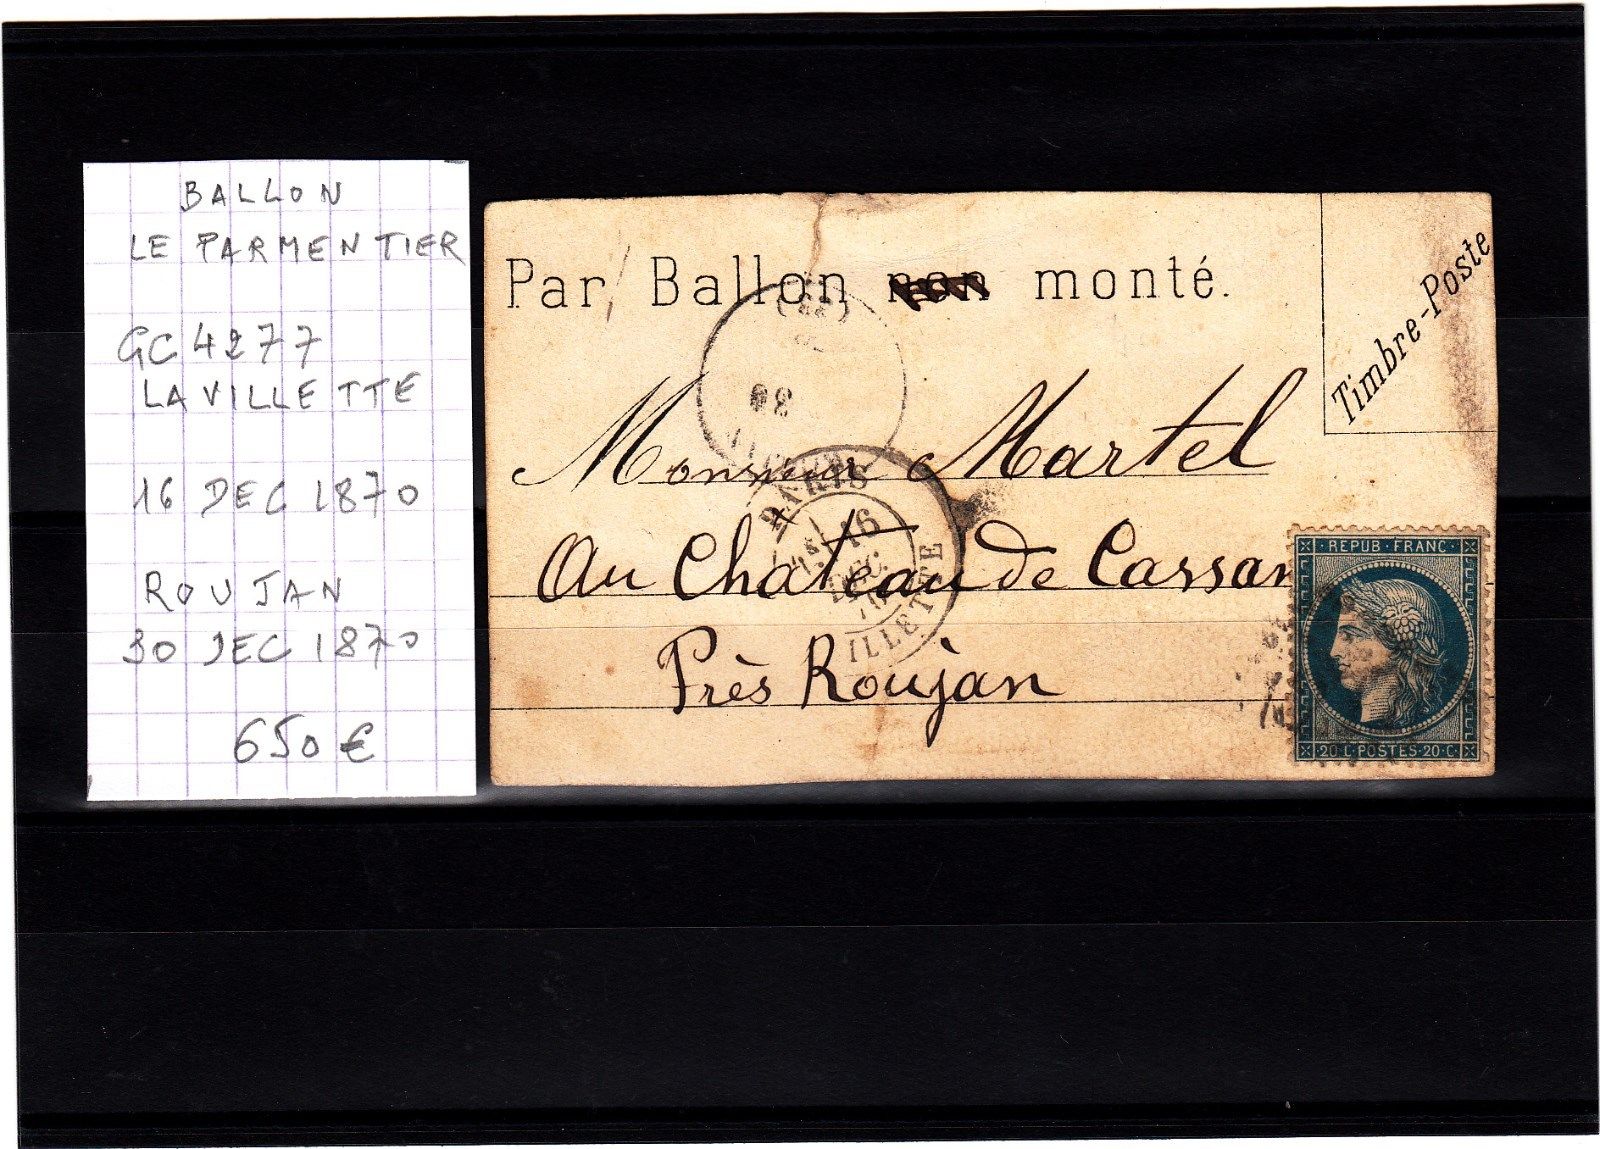 BALLON
LE PARMENTIER
GC 4277
LA VILLETTE
16 DEC 1870
ROUJAN
30 DEC 1870
650 €
Par Ballon non monté.
Timbre-Poste
Monsieur Martel
Au Château de Cassan
Près Roujan
30
PARIS
16
DEC.
70
ILLETTE
REPUB·FRANC
20 C·POSTES·20·C